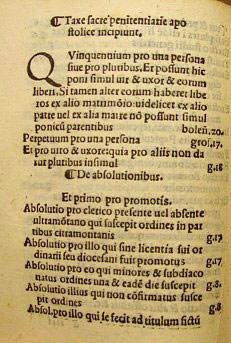 ¶ Taxe sacre penitentiarie apo
stolice incipiunt.
QVinquentium pro una persona
siue pro pluribus. Et possunt hic
poni simul uir & uxor & eorum
liberi. Si tamen alter eorum haberet libe
ros ex alio matrimõio uidelicet ex alio
patre uel ex alia matre nõ possunt simul
poni cũ parentibus boleñ. 20.
Perpetuum pro una persona gros. 17.
Et pro utro & uxore: quia pro aliis non da
tur pluribus insimul g. 18
¶ De absolutionibus.
Et primo pro promotis.
Absolutio pro clerico presente uel absente
ultramõtano qui suscepit ordines in par
tibus citramontanis g. 17
Absolutio pro illo qui sine licentia sui or
dinarii seu diocesani fuit promotus g. 17
Absolutio pro eo qui minores & subdiaco
natus ordines una & eadẽ die suscepit g. 8.
Absolutio illius qui non cõfirmatus susce
pit ordines g. 8.
Absol. pro illo qui se fecit ad titulum fictũ